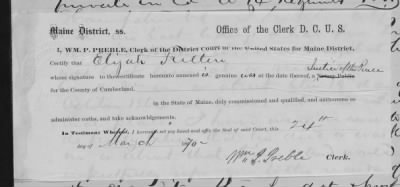 Maine District, ss. Office of the Clerk D. C. U. S.
I, WM. P. PREBLE, Clerk of the District Court of the United States for Maine District,
Certify that Elijah
whose signature to the certificate hereunto annexed is genuine was at the date thereof, a Notary Public Justice of the Peace
for the County of Cumberland.
in the State of Maine, duly commissioned and qualified, and authorized to
administer oaths, and take acknowledgements.
In Testimony Whereof, I hereunto set my hand and affix the Seal of said Court, this 24th
day of March
Wm P Preble Clerk.